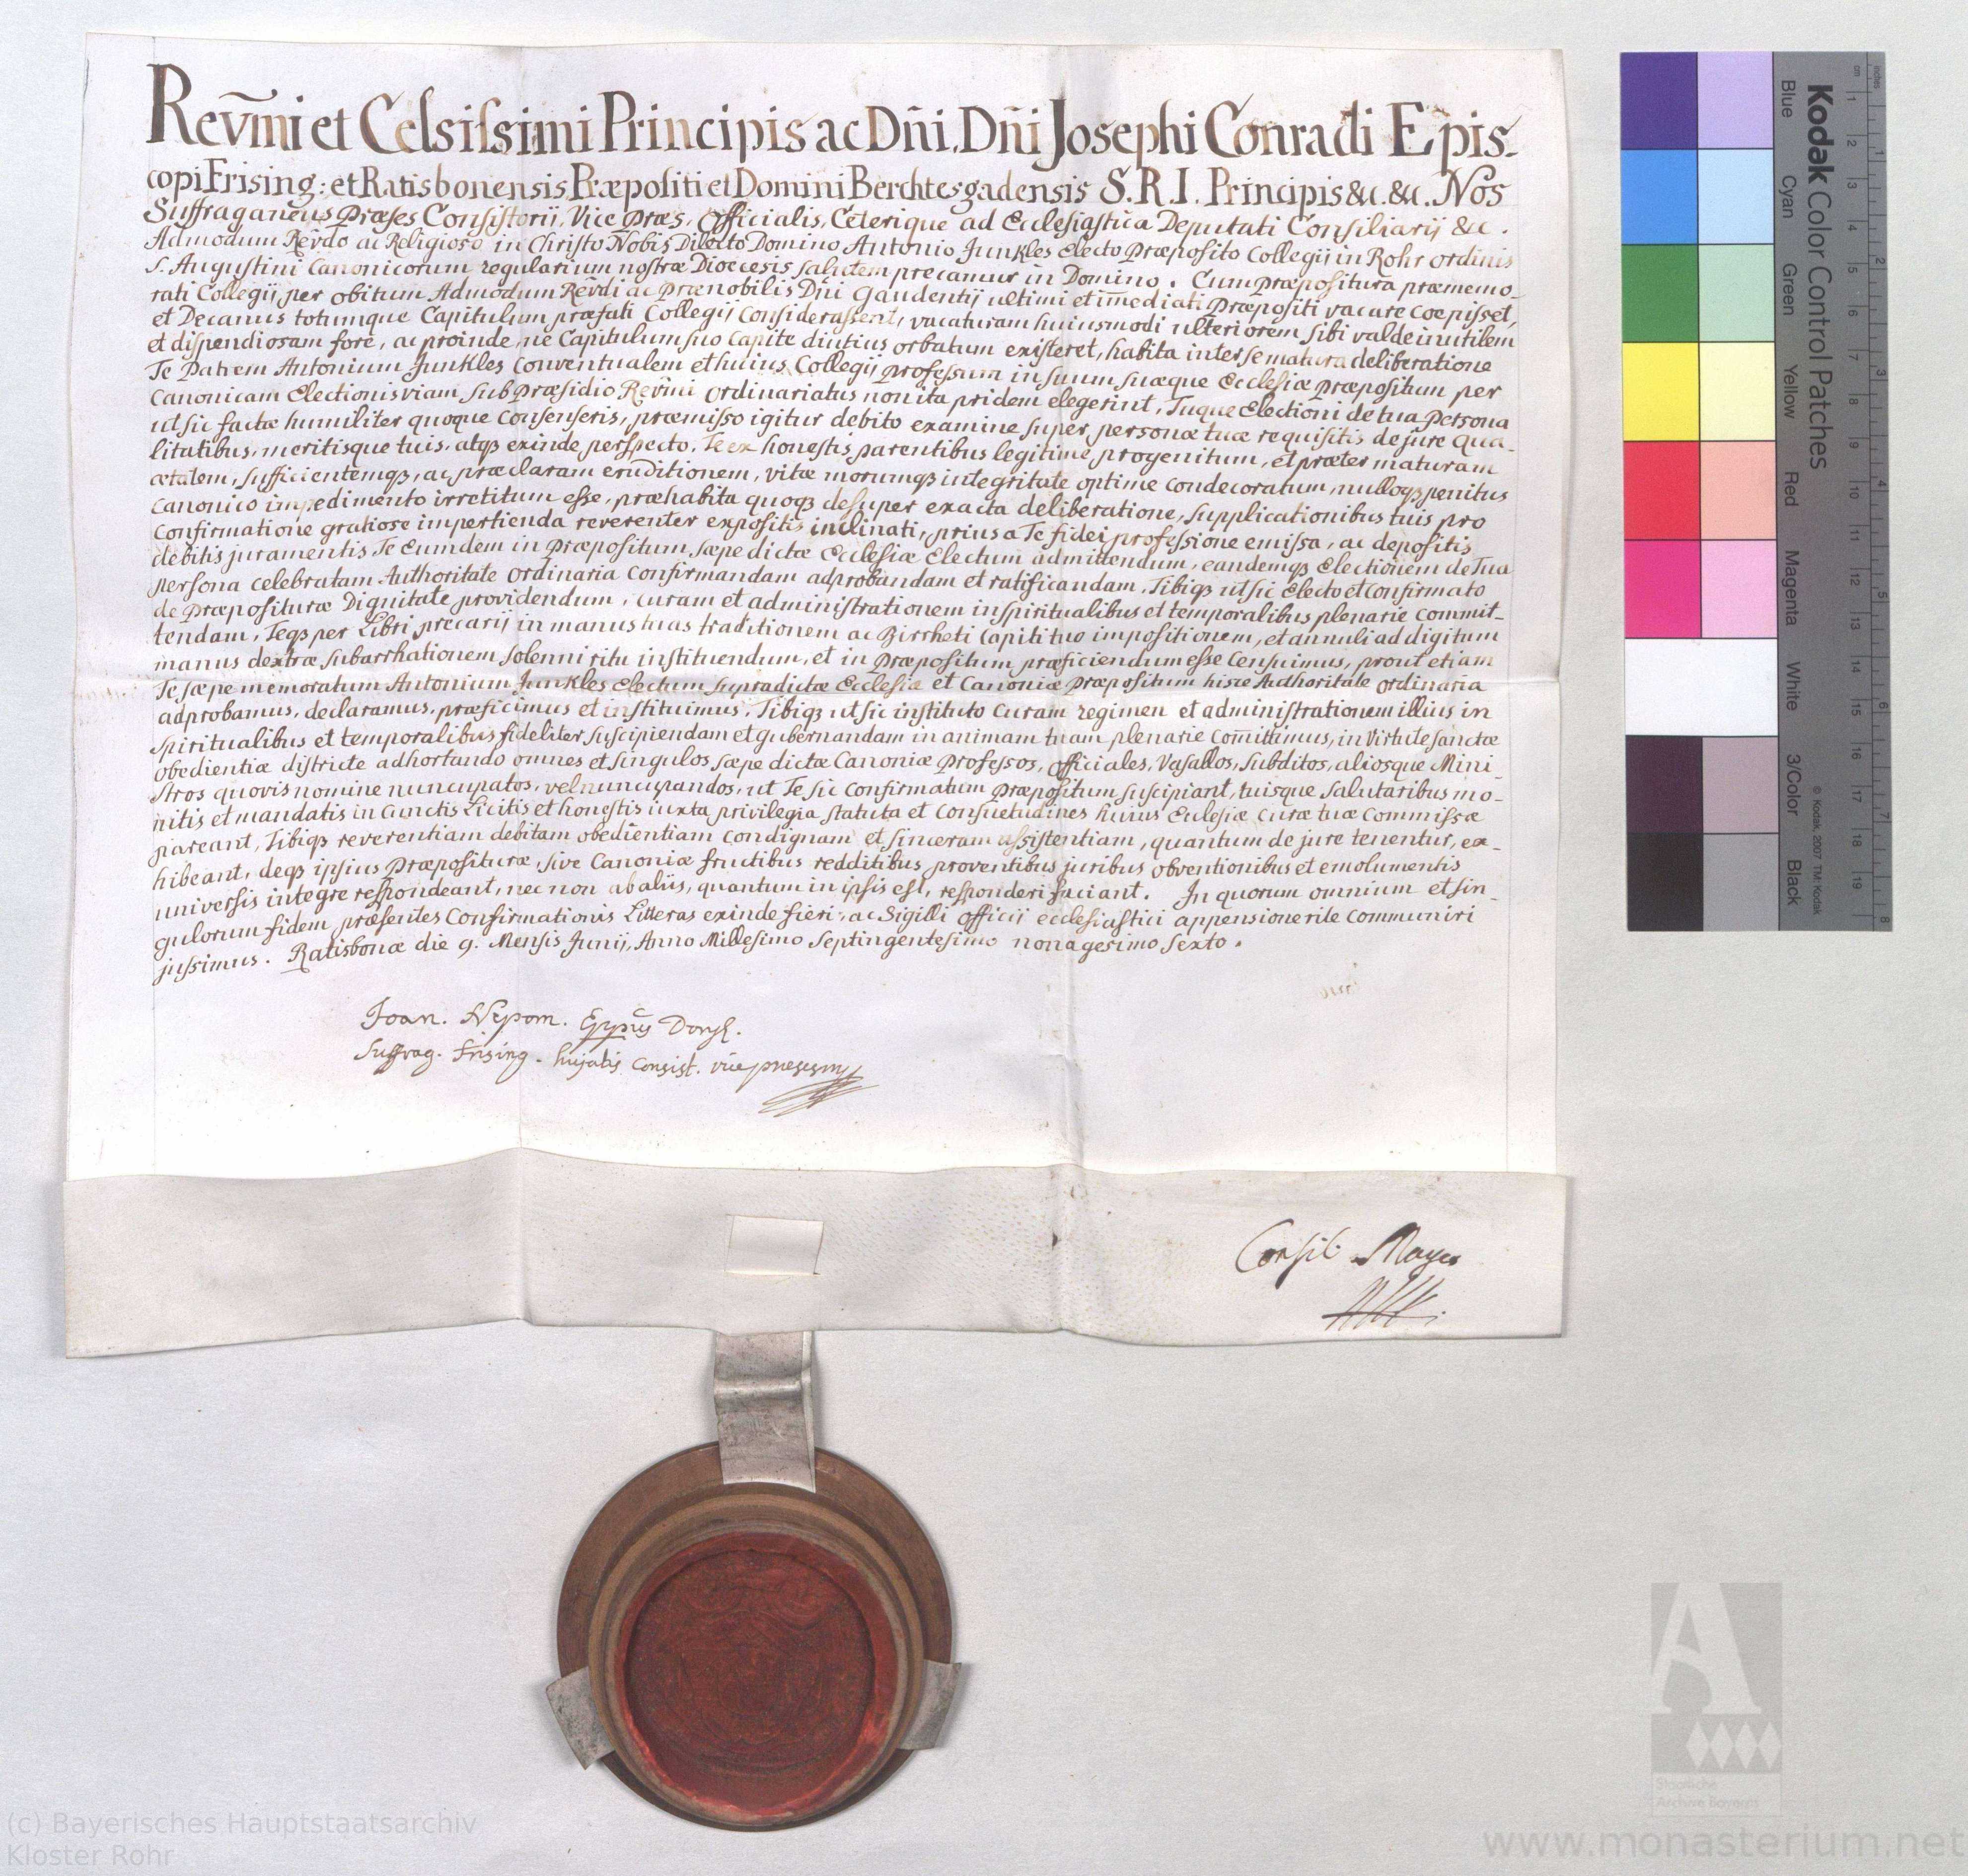 Reṽmi et Celsissimi Principis ac Dñi, Dñi Josephi Conradi Epis-
copi Frising: et Ratisbonensis, Præpositi et Domini Berchtesgadensis S.R.I. Principis &c. &c. Nos
Suffraganeus Præses Consistorii, Vice Præs, Officialis, Ceterique ad Ecclesiastica Deputati Consiliarij &c.
Admodum Reṽdo ac Religioso in Christo Nobis Dilecto Domino Antonio Junkles Electo Præposito Collegij in Rohr ordinis
S. Augustini Canonicorum regularium nostræ Dioecesis salutem precamur in Domino. Cum Præpositura præmemo-
rati Collegij per obitum Admodum Reṽdi ac Prænobilis Dñi Gaudentij ultimi et im̄ediati Præpositi vacare coepisset,
et Decanus totumque Capitulum præfati Collegij considerassent, vacaturam huiusmodi ulteriorem sibi valde inutilem
et dispendiosam fore, ac proinde, ne Capitulum suo capite diutius orbatum existeret, habita inter se matura deliberatione
Te Patrem Antonium Junkles Conventualem et huius Collegij professum in suum suæque Ecclesiæ Præpositum per
Canonicam Electionis viam sub Præsidio Reṽmi Ordinariatus non ita pridem elegerint, Tuque Electioni de tua Persona
ut sic factæ humiliter quoque consenseris, præmisso igitur debito examine super personæ tuæ requisitis de jure qua-
litatibus, meritisque tuis, atqȝ exinde perspecto, Te ex honestis parentibus legitime progenitum, et præter maturam
ætatem, sufficientemqȝ, ac præclaram eruditionem, vitæ morumqȝ integritate optime condecoratum, nulloqȝ penitus
canonico impedimento irretitum esse, præhabita quoqȝ desuper exacta deliberatione, supplicationibus tuis pro
Confirmatione gratiose impertienda reverenter expositis inclinati, prius a Te fidei professione emissa, ac depositis
debitis juramentis Te Eumdem in Præpositum sæpe dictæ Ecclesiæ Electum admittendum, eandemqȝ Electionem de Tua
persona celebratam Authoritate ordinaria confirmandam adprobandam et ratificandam, Tibiqȝ ut sic Electo et confirmato
de Præposituræ Dignitate providendum, curam et administrationem in spiritualibus et temporalibus plenarie commit-
tendam, Teqȝ per Libri precarij in manus tuas traditionem ac Birrheti capiti tuo impositionem, et annuli ad digitum
manus dextræ subarrhationem solenni ritu instituendum, et in Præpositum præficiendum esse censuimus, prout etiam
Te sæpe memoratum Antonium Junkles Electum supradictæ Ecclesiæ et Canoniæ Præpositum hisce Authoritate ordinaria
adprobamus, declaramus, præficimus et instituimus, Tibiqȝ ut sic instituto curam regimen et administrationem illius in
spiritualibus et temporalibus fideliter suscipiendam et gubernandam in animam tuam plenarie com̄ittimus, in virtute sanctæ
obedientiæ districte adhortando omnes et singulos sæpe dictæ Canoniæ Professos, officiales, Vasallos, subditos, aliosque Mini-
stros quovis nomine nuncupatos, vel nuncupandos, ut Te sic confirmatum Præpositum suscipiant, tuisque salutaribus mo-
nitis et mandatis in cunctis Licitis et honestis iuxta privilegia statuta et consuetudines huius Ecclesiæ curæ tuæ commissæ
pareant, Tibiqȝ reverentiam debitam obedientiam condignam et sinceram assistentiam, quantum de jure tenentur, ex-
hibeant, deqȝ ipsius Præposituræ, sive Canoniæ fructibus redditibus proventibus juribus obventionibus et emolumentis
universis integre respondeant, nec non ab aliis, quantum in ipsis est, responderi faciant. In quorum omnium et sin-
gulorum fidem præsentes Confirmationis Litteras exinde fieri, ac Sigilli officij ecclesiastici appensione rite communiri
jussimus. Ratisbonæ die 9. Mensis Junij, Anno Millesimo Septingentesimo nonagesimo sexto.
Joan. Nepom. Eppus
Suffrag. Frising. hujatis consist. vice præses
Consil. Mayer
Kodak Color Control Patches
Blue Cyan Green Yellow Red Magenta White 3/Color Black
© Kodak, 2007 TM: Kodak
cm 1 2 3 4 5 6 7 8 9 10 11 12 13 14 15 16 17 18 19
inches 1 2 3 4 5 6 7 8
Staatliche
Archive Bayerns
(c) Bayerisches Hauptstaatsarchiv
Kloster Rohr
www.monasterium.net